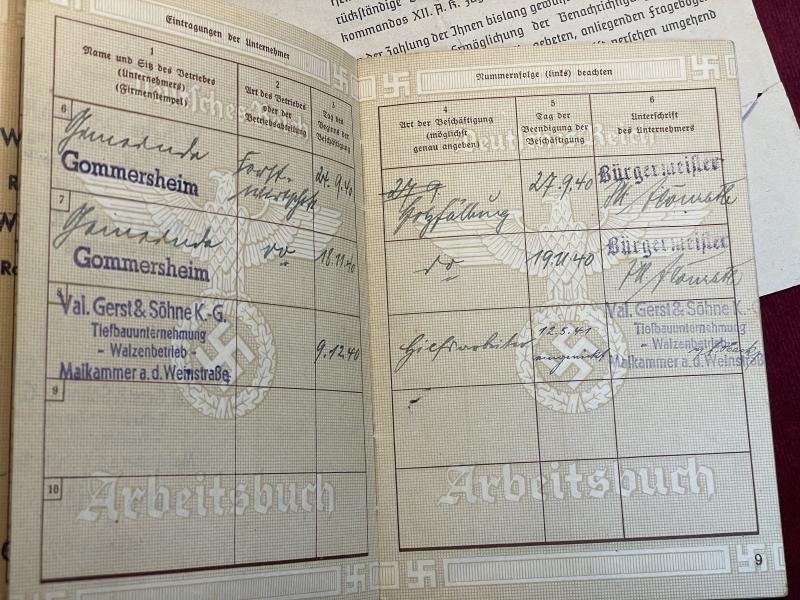 rückständige
kommandos XII. A. K.
der Zahlung der Ihnen bislang
Ermöglichung der
gebeten, anliegenden Fragebogen
versehen umgehend
Eintragungen der Unternehmer
1
Name und Sitz des Betriebes
(Unternehmers)
(Firmenstempel)
2
Art des Betriebes
oder der
Betriebsabteilung
3
Tag des
Beginns der
Beschäftigung
6
Gemeinde
Gommersheim
Forst-
wirtschft
24. 9. 40
7
Gemeinde
Gommersheim
do
18.11.40
8
Val. Gerst & Söhne K.-G.
Tiefbauunternehmung
- Walzenbetrieb -
Maikammer a. d. Weinstraße
9.12.40
9
10
Arbeitsbuch
Nummernfolge (links) beachten
4
Art der Beschäftigung
(möglichst
genau angeben)
5
Tag der
Beendigung der
Beschäftigung
6
Unterschrift
des Unternehmers
Deutsches Reich
27 9
Holzfällung
27.9.40
Bürgermeister
do
19.11.40
Bürgermeister
Hilfsarbeiter
12.5.41
eingerückt
Val. Gerst & Söhne K.-G.
Tiefbauunternehmung
- Walzenbetrieb -
Maikammer a. d. Weinstraße
Arbeitsbuch
9